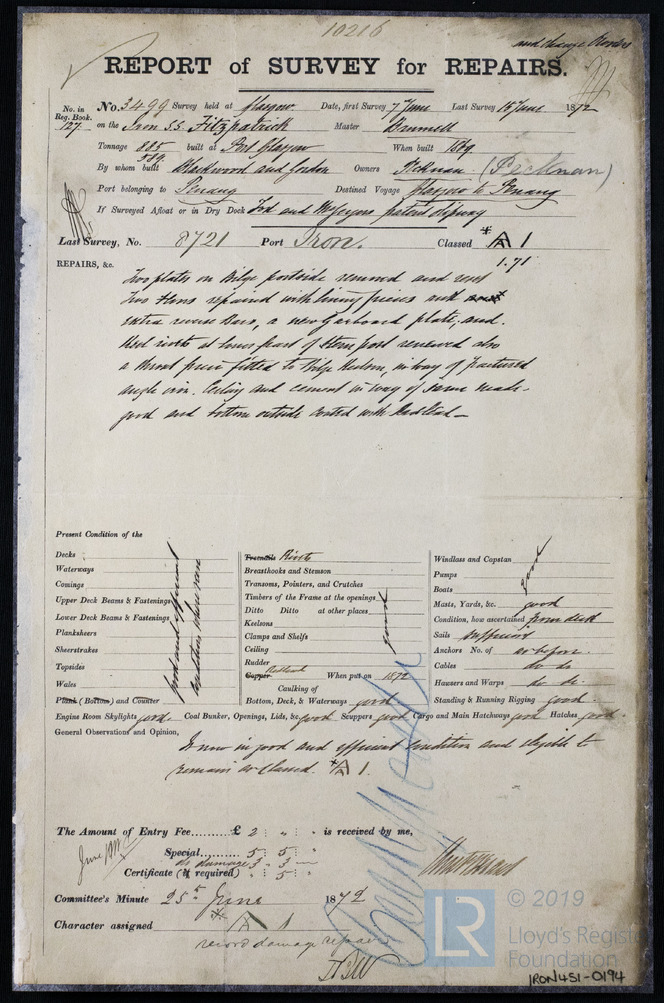 10216
and change Owners
REPORT of SURVEY for REPAIRS.
No. in Reg. Book. 127. No. 3499 Survey held at Glasgow Date, first Survey 7 June Last Survey 15 June 1872
on the Iron S.S. Fitzpatrick Master
Tonnage 885 built at Port Glasgow When built 1869
589
By whom built Blackwood and Gordon Owners (Pecknan)
Port belonging to Penang Destined Voyage Glasgow to Penang
If Surveyed Afloat or in Dry Dock Tod and McGregors patent slipway
Last Survey, No. 8721 Port Iron. Classed A 1
1.71
REPAIRS, &c. Two plates on Bilge portside removed and
Two repaired with lining pieces and
extra reverse Bars, a new Garboard plate, and
rivets at lower part of Stern post renewed also
a piece fitted to Bilge Keelson, in way of fractured
angle iron. Ceiling and cement in way of same made
good and bottom outside coated with Red lead—
Present Condition of the
Decks
Waterways
Comings
Upper Deck Beams & Fastenings
Lower Deck Beams & Fastenings
Planksheers
Sheerstrakes
Topsides
Wales
Plank (Bottom) and Counter
good and efficient
condition where seen
Treenails Rivets
Breasthooks and Stemson
Transoms, Pointers, and Crutches
Timbers of the Frame at the openings
Ditto Ditto at other places
Keelsons
Clamps and Shelfs
Ceiling
Rudder
good
Copper Red lead When put on 1872
Caulking of
Bottom, Deck, & Waterways good
Windlass and Capstan
Pumps
Boats
good
Masts, Yards, &c. good
Condition, how ascertained from deck
Sails sufficient
Anchors No. of as before
Cables do do
Hawsers and Warps do do.
Standing & Running Rigging good
Engine Room Skylights good. Coal Bunker, Openings, Lids, &c. good Scuppers good Cargo and Main Hatchways good Hatches good
General Observations and Opinion,
Is now in good and efficient condition and eligible to
remain as classed. A 1.
The Amount of Entry Fee......... £ 2 : „ : „ is received by me,
Special.......... 5 : 5 :
do damage 3 : 3 :
Certificate (if required) „ : 5 :
Committee's Minute 25th June 1872
Character assigned A 1
record damage repairs
LR
© 2019
Lloyd's Register
Foundation
IRON451-0194